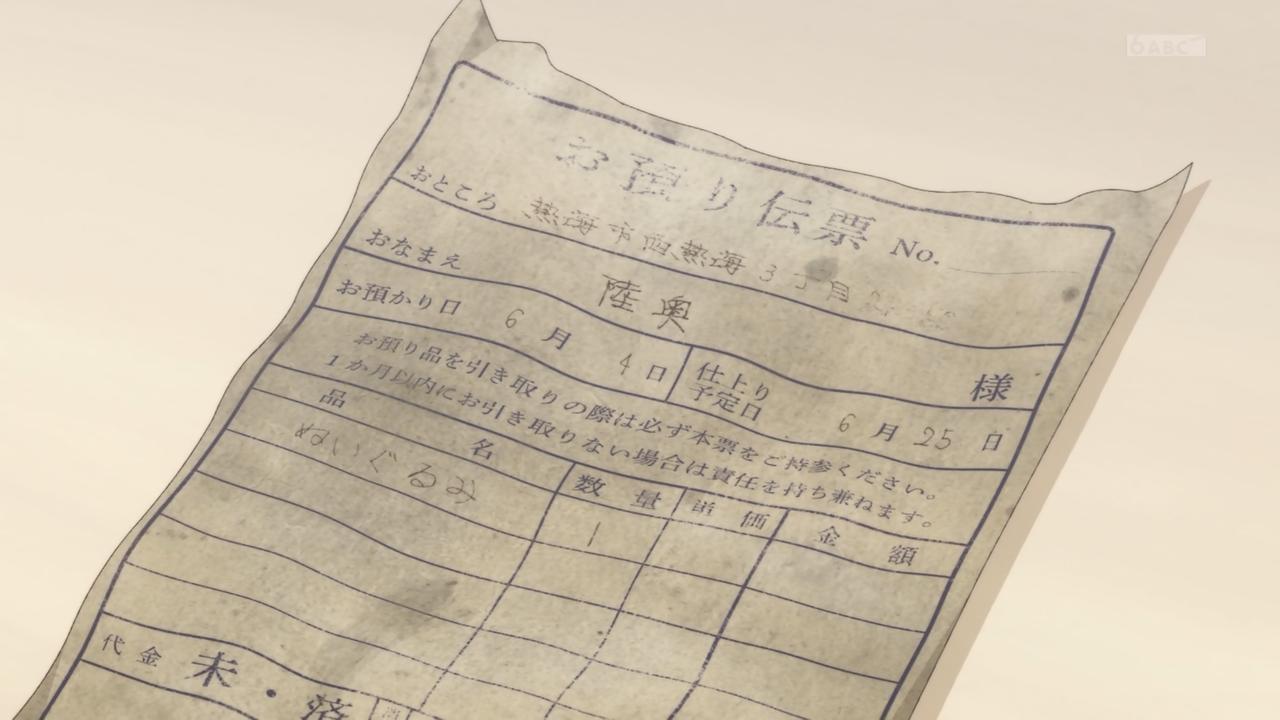 6ABC
お預り伝票 No.
おところ 熱海市西熱海3丁目
おなまえ 陸奥 様
お預かり日 6月4日 仕上り予定日 6月25日
お預り品を引き取りの際は必ず本票をご持参ください。
1か月以内にお引き取りない場合は責任を持ち兼ねます。
品名 数量 単価 金額
ぬいぐるみ 1
代金 未・済